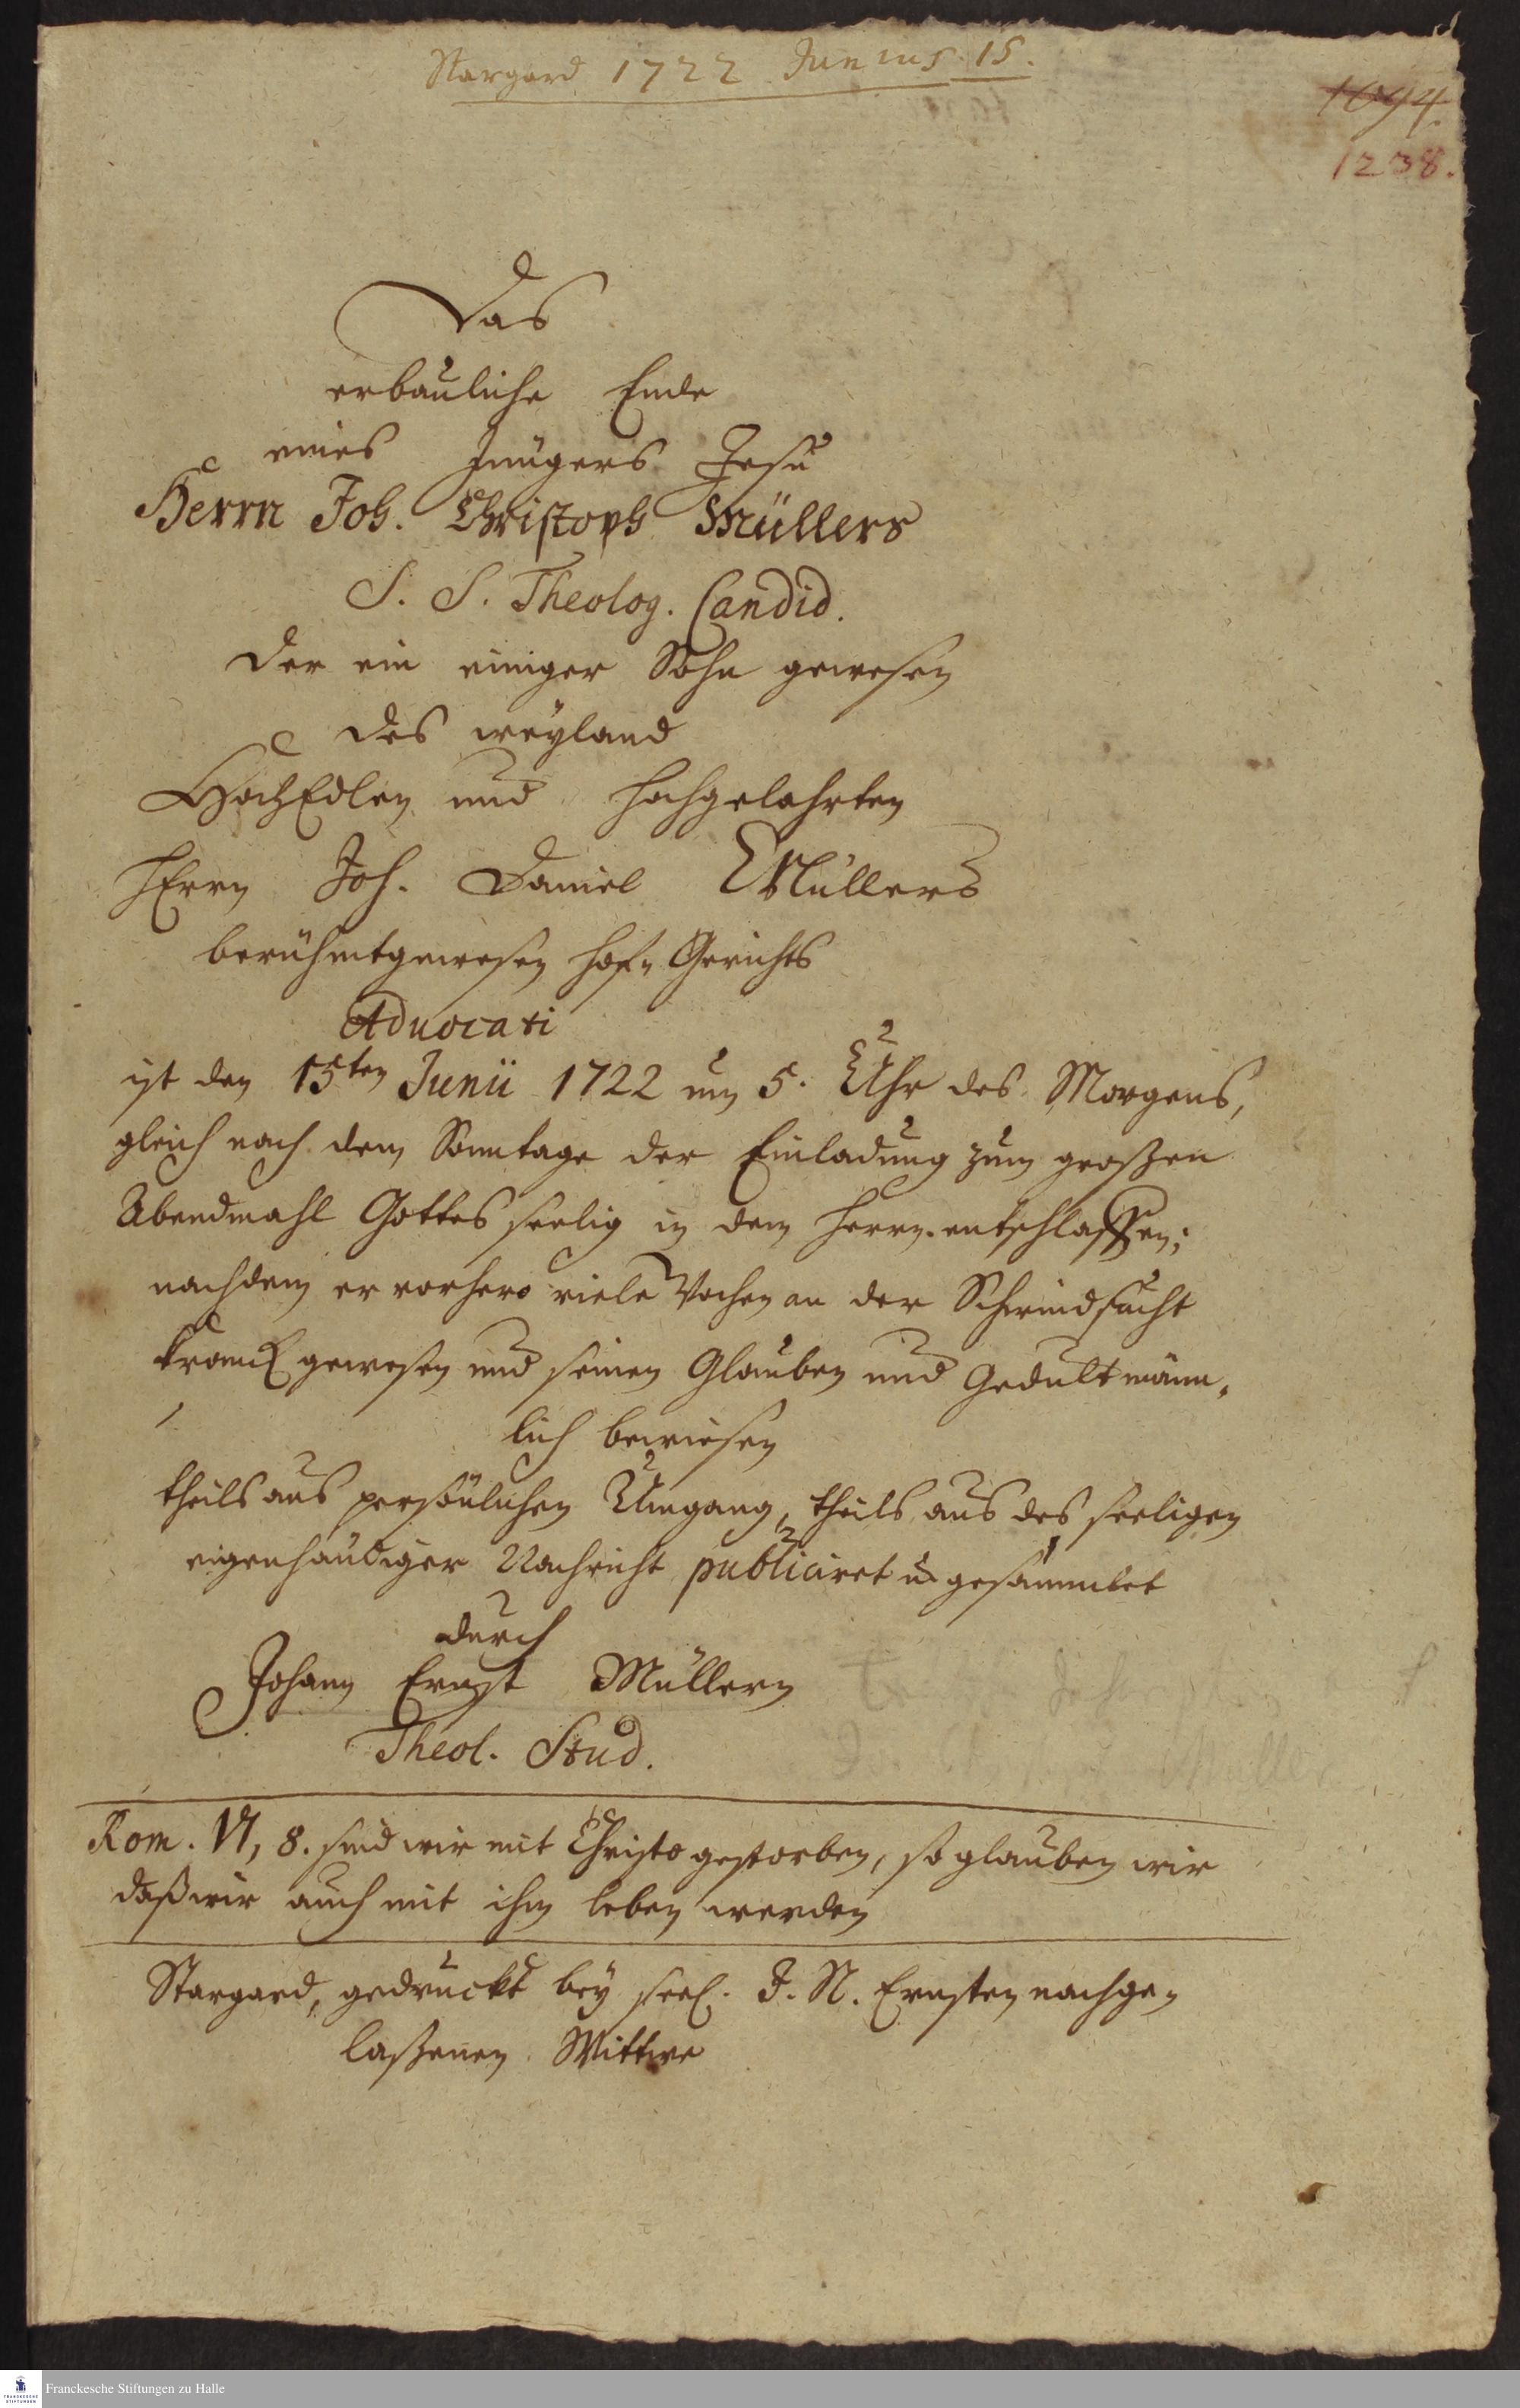 Stargard 1722 Junius 15.
1094.
1238.
Das
erbauliche Ende
eines Jüngers Jesu
Herrn Joh. Christoph Müllers
S. S. Theolog. Candid.
der ein einiger Sohn gewesen
des weyland
HochEdlen und Hochgelahrten
HErrn Joh. Daniel Müllers
berühmtgewesen Hof- Gerichts
Advocati
ist den 15ten Junii 1722 um 5. Uhr des Morgens,
gleich nach dem Sonntage der Einladung zum großen
Abendmahl Gottes seelig in dem Herrn entschlaffen;
nachdem er vorhero viele Wochen an der Schwindsucht
kranck gewesen und seinen Glauben und Gedult männ-
lich bewiesen
theils aus persönlichen Umgang, theils aus des seeligen
eigenhändiger Nachricht publiciret u. gesammlet
durch
Johann Ernst Müllern
Theol. Stud.
Rom. VI, 8. sind wir mit Christo gestorben, so glauben wir
daß wir auch mit ihm leben werden
Stargard, gedruckt bey seel. J. N. Ernsten nachge-
laßenen Wittwe
Franckesche Stiftungen zu Halle